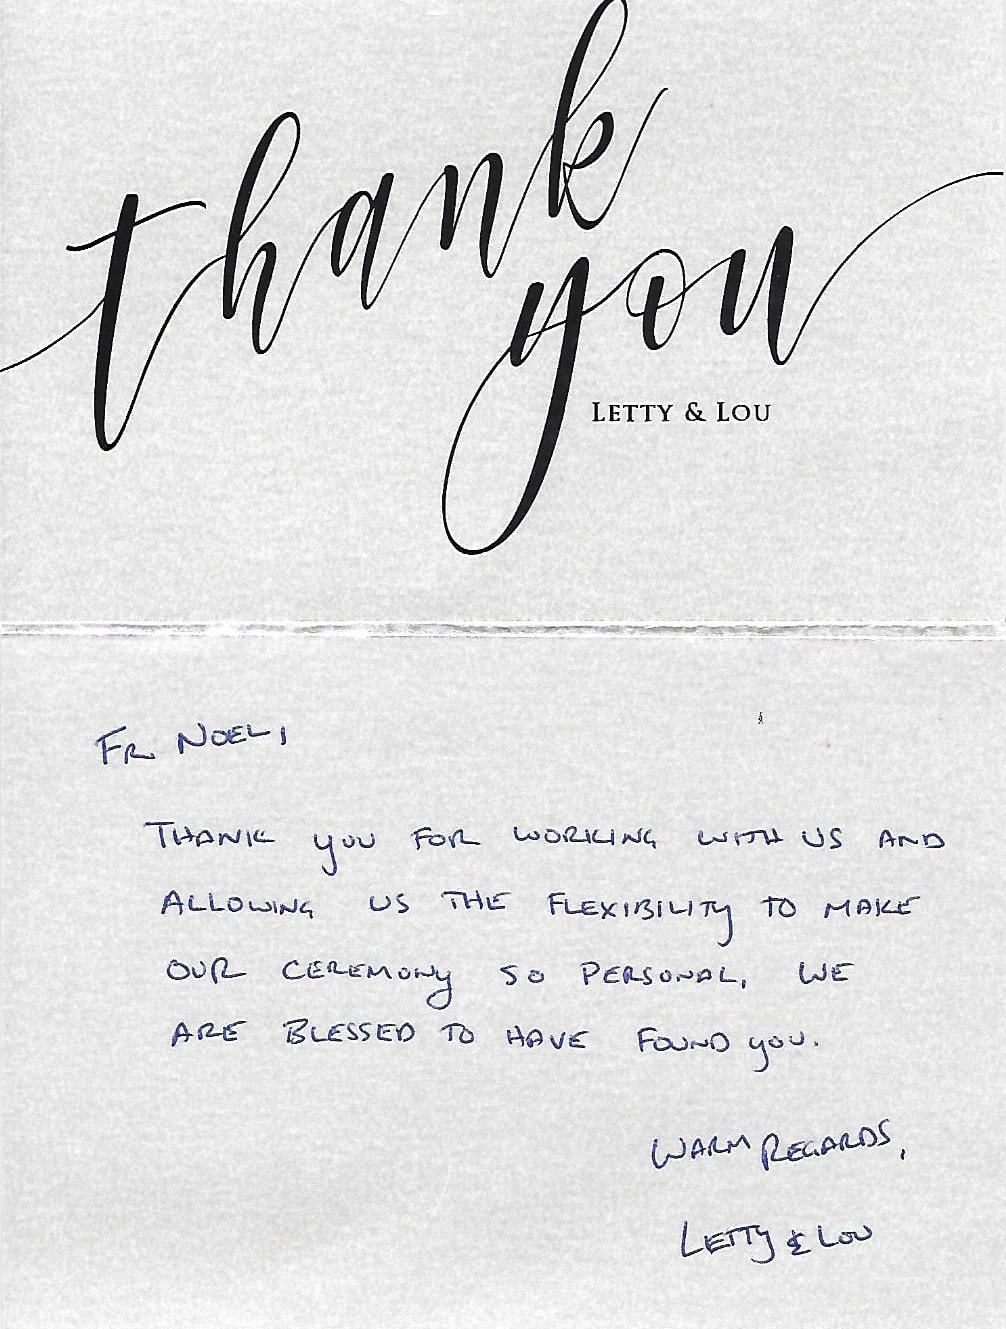 thank
you
LETTY & LOU
FR NOEL,
THANK YOU FOR WORKING WITH US AND
ALLOWING US THE FLEXIBILITY TO MAKE
OUR CEREMONY SO PERSONAL, WE
ARE BLESSED TO HAVE FOUND YOU.
WARM REGARDS,
LETTY & LOU